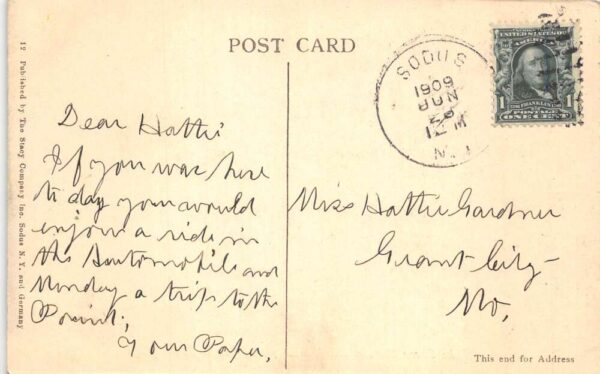 POST CARD
SODUS
1909
JUN
12 M
N.Y.
UNITED STATES OF
FRANKLIN
1 POSTAGE 1
ONE CENT
Dear Hattie
If you was here
to day you would
enjoy a ride in
the Automobile and
Monday a trip to the
Point,
Your Papa,
Miss Hattie Gardner
Grant City
Mo,
This end for Address
12 Published by The Stacy Company Inc. Sodus N. Y. and Germany